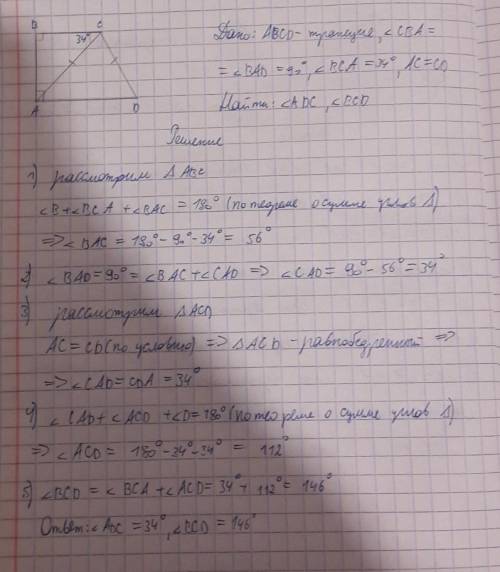 B C
34°
A D
Дано: ABCD - трапеция, ∠CBA =
= ∠BAD = 90°, ∠BCA = 34°, AC = CD
Найти: ∠ADC, ∠BCD
Решение
1) рассмотрим △ABC
∠B + ∠BCA + ∠BAC = 180° (по теореме о сумме углов △)
=> ∠BAC = 180° - 90° - 34° = 56°
2) ∠BAD = 90° = ∠BAC + ∠CAD => ∠CAD = 90° - 56° = 34°
3) рассмотрим △ACD
AC = CD (по условию) => △ACD - равнобедренный =>
=> ∠CAD = CDA = 34°
4) ∠CAD + ∠ACD + ∠D = 180° (по теореме о сумме углов △)
=> ∠ACD = 180° - 34° - 34° = 112°
5) ∠BCD = ∠BCA + ∠ACD = 34° + 112° = 146°
Ответ: ∠ADC = 34°, ∠BCD = 146°